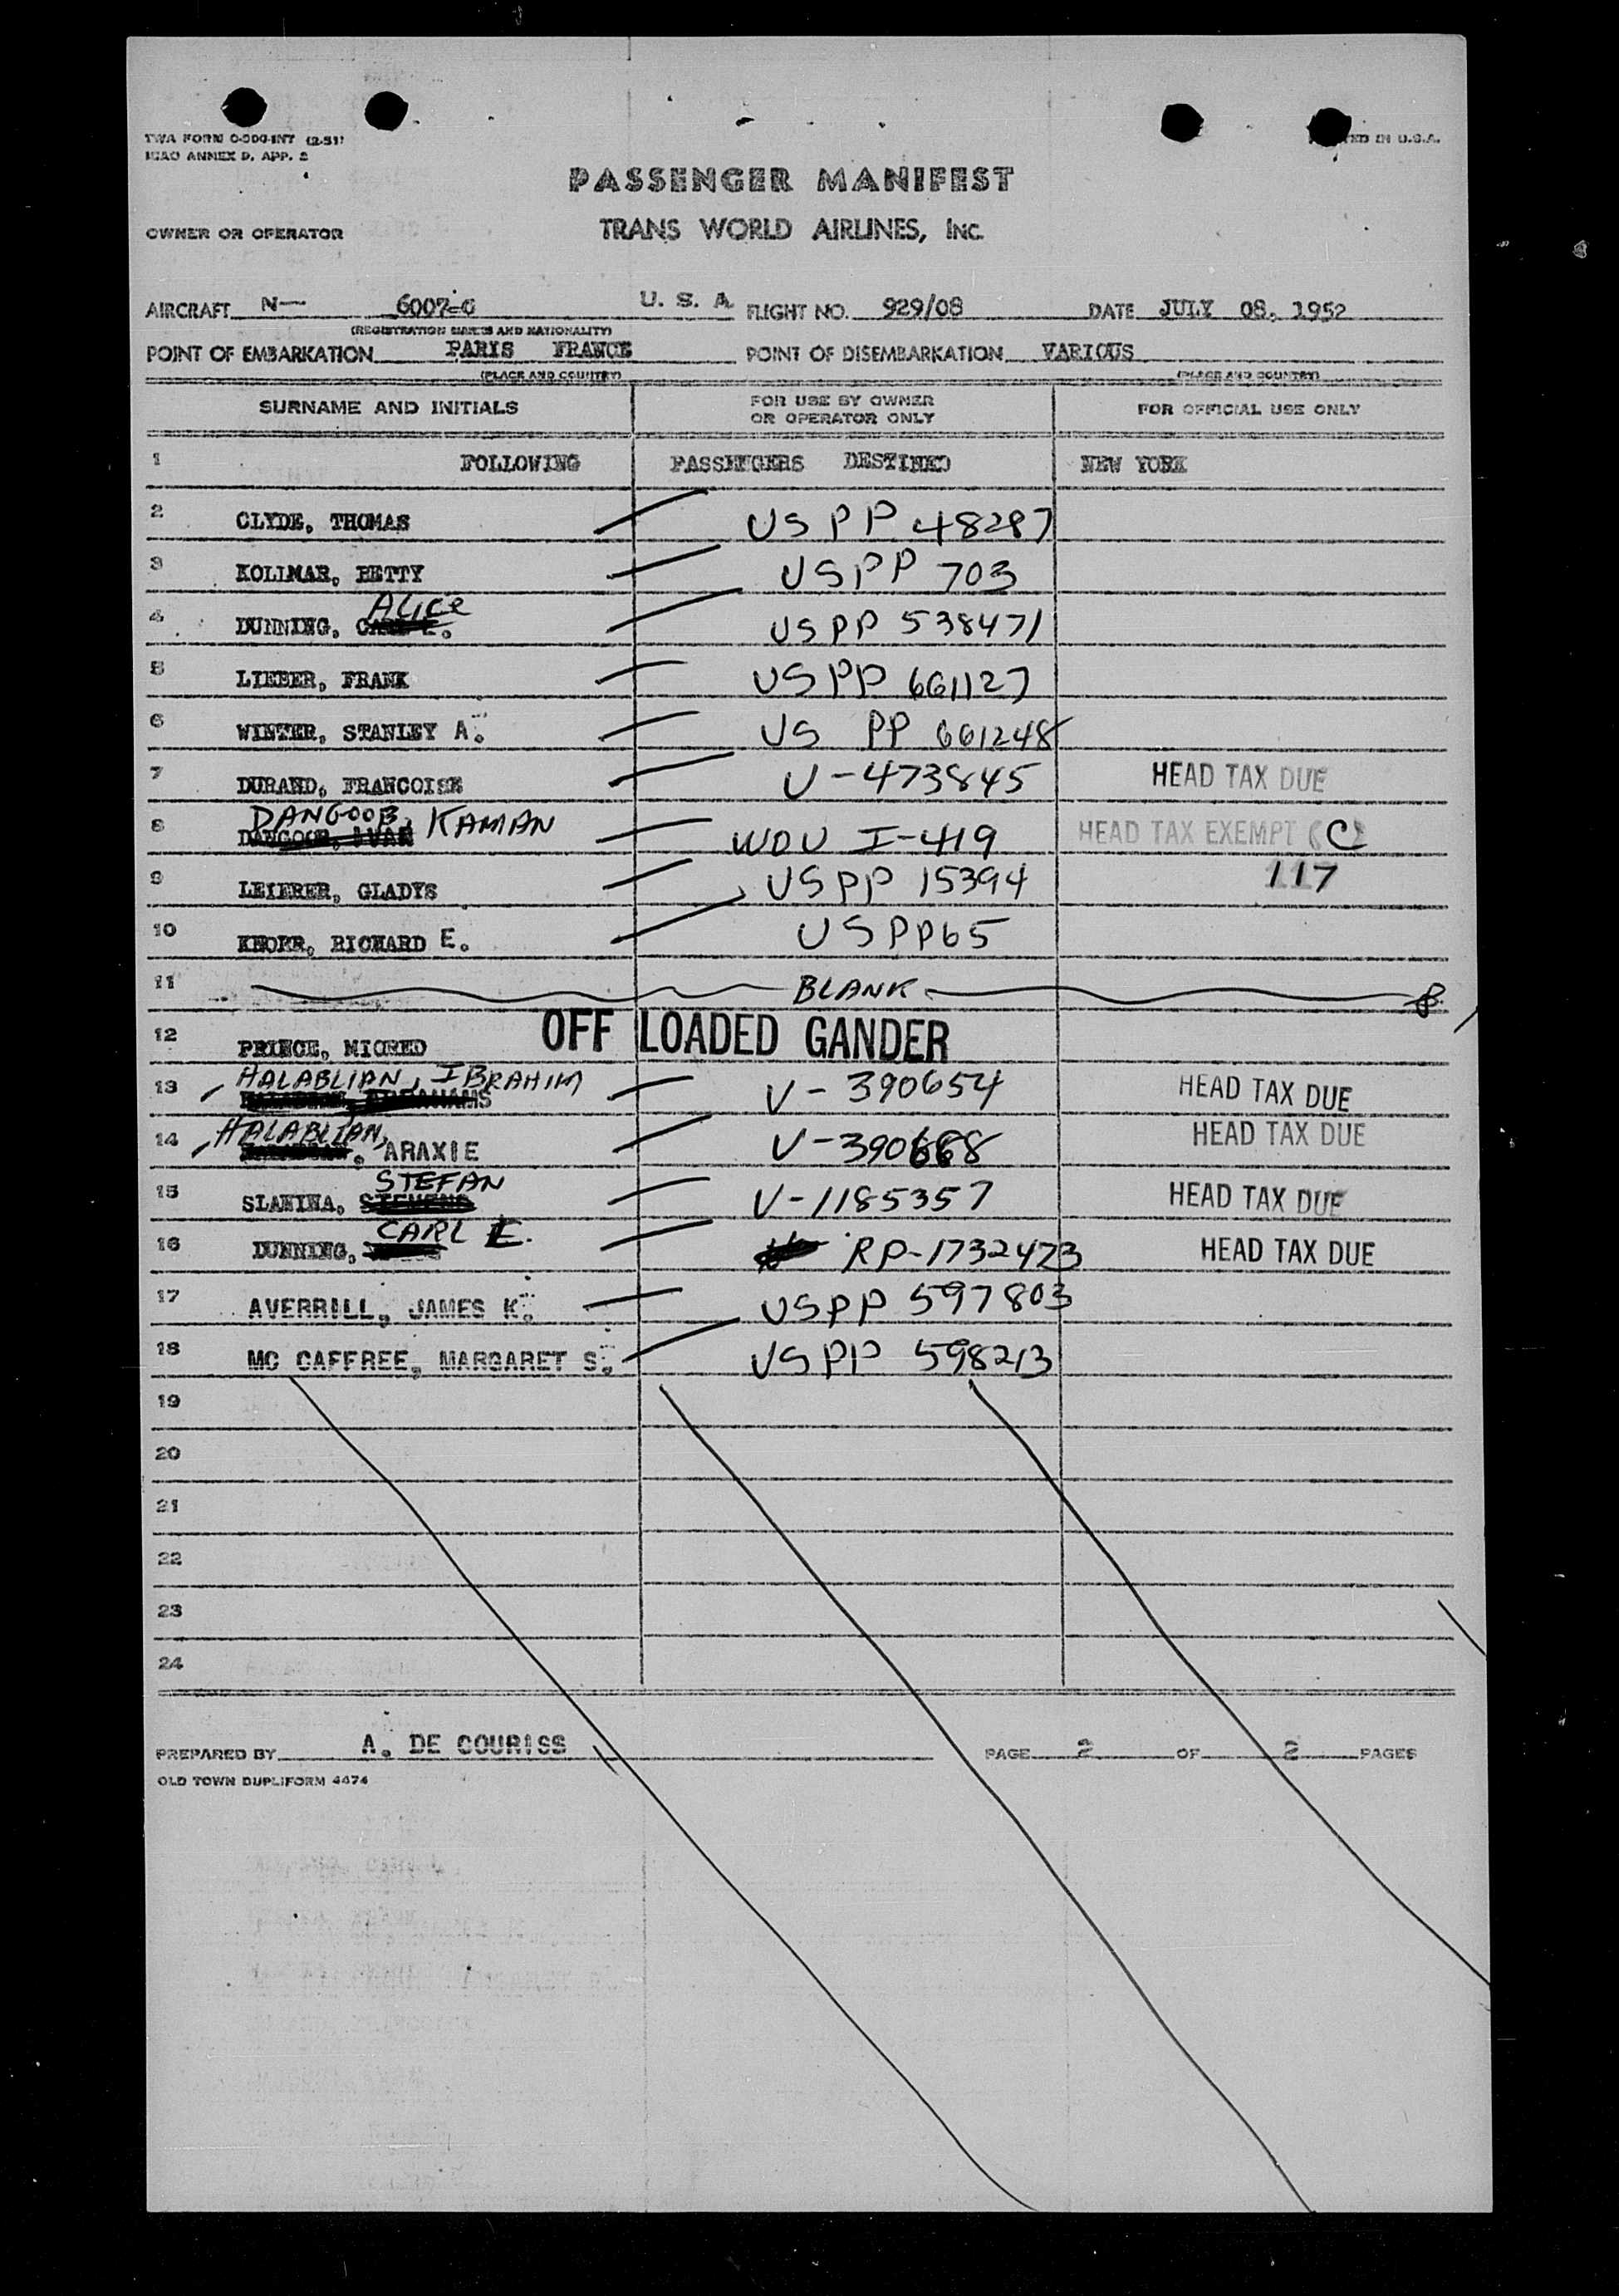 TWA FORM O-300-INT (2-51)
ICAO ANNEX 9, APP. 2
IN U.S.A.
PASSENGER MANIFEST
OWNER OR OPERATOR TRANS WORLD AIRLINES, INC.
AIRCRAFT N— 6007-C U. S. A. FLIGHT NO. 929/08 DATE JULY 08, 1952
(REGISTRATION MARKS AND NATIONALITY)
POINT OF EMBARKATION PARIS FRANCE POINT OF DISEMBARKATION VARIOUS
(PLACE AND COUNTRY) (PLACE AND COUNTRY)
SURNAME AND INITIALS FOR USE BY OWNER OR OPERATOR ONLY FOR OFFICIAL USE ONLY
1 FOLLOWING PASSENGERS DESTINED NEW YORK
2 CLYDE, THOMAS US PP 48287
3 KOLLMAR, BETTY USPP 703
4 DUNNING, ALICE USPP 538471
5 LIEBER, FRANK USPP 661127
6 WINTER, STANLEY A. US PP 661248
7 DURAND, FRANCOISE V-473845 HEAD TAX DUE
8 DANGOOB, KAMAN WDV I-419 HEAD TAX EXEMPT (C)
9 LEIERER, GLADYS USPP 15394 117
10 KNORR, RICHARD E. USPP65
11 BLANK
12 PRINCE, MICRED OFF LOADED GANDER
13 HALABLIAN, IBRAHIM V-390654 HEAD TAX DUE
14 HALABLIAN, ARAXIE V-390668 HEAD TAX DUE
15 SLANINA, STEFAN V-1185357 HEAD TAX DUE
16 DUNNING, CARL E. RP-1732473 HEAD TAX DUE
17 AVERRILL, JAMES K. USPP 597803
18 MC CAFFREE, MARGARET S. USPP 598213
19
20
21
22
23
24
PREPARED BY A. DE COURISS PAGE 2 OF 2 PAGES
OLD TOWN DUPLIFORM 4474